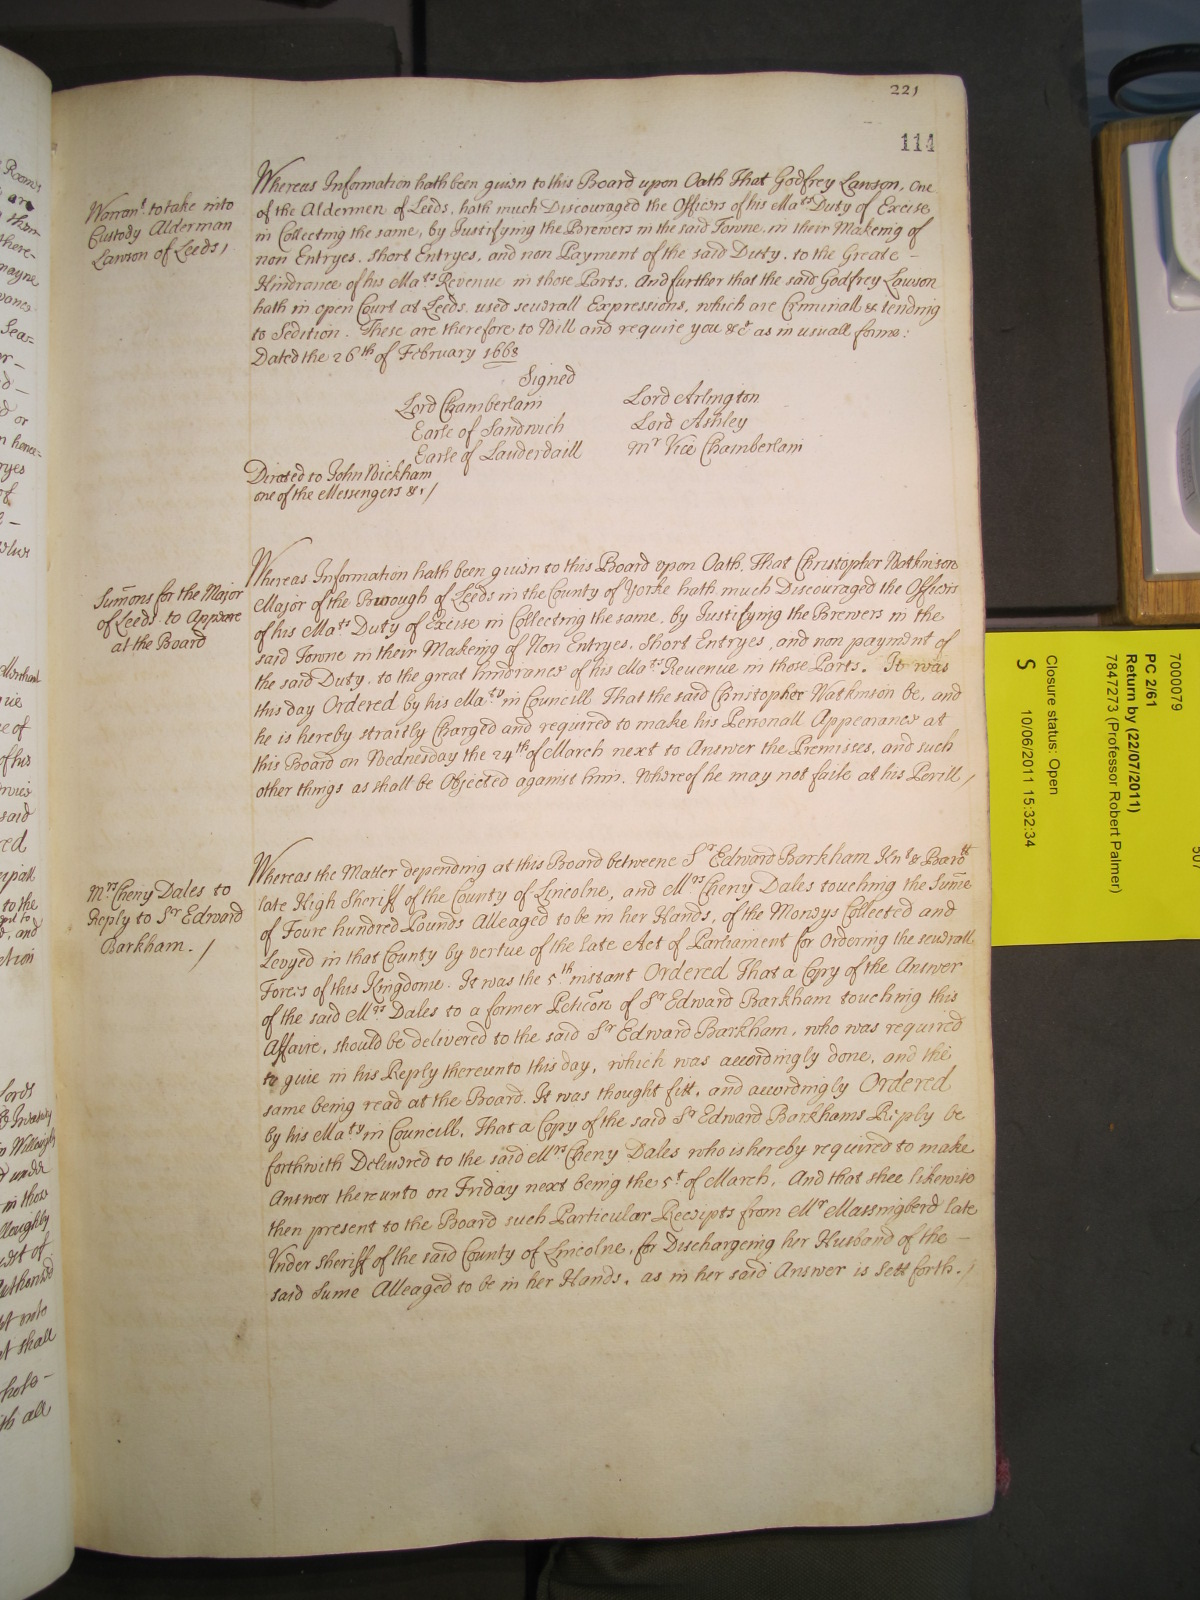 221
114
Warrant. to take into
Custody Alderman
Lawson of Leeds /
Whereas Information hath been given to this Board upon Oath That Godfrey Lawson, one
of the Aldermen of Leeds, hath much Discouraged the Officers of his Mats Duty of Excise
in Collecting the same, by Justifying the Brewers in the said Towne, in their Makeing of
non Entryes, short Entryes, and non Payment of the said Duty, to the Greate -
Hindrance of his Mats Revenue in those Parts, And further that the said Godfrey Lawson
hath in open Court at Leeds, used severall Expressions, which are Criminall & tending
to Sedition. These are therefore to Will and require you &c as in usuall forme:
Dated the 26th of February 1668
Signed
Lord Chamberlain
Earle of Sandwich
Earle of Lauderdaill
Lord Arlington
Lord Ashley
Mr Vice Chamberlain
Directed to John Wickham
one of the Messengers &. /
Sumons for the Major
of Leeds to Appeare
at the Board
Whereas Information hath been given to this Board upon Oath, That Christopher Watkinson
Major of the Burough of Leeds in the County of Yorke hath much Discouraged the Officers
of his Mats Duty of Excise in Collecting the same, by Justifying the Brewers in the
said Towne in their Makeing of Non Entryes, Short Entryes, and non payment of
the said Duty, to the great hindrance of his Mats Revenue in those Parts. It was
this day Ordered by his Maty in Councill That the said Christopher Watkinson be, and
he is hereby straitly Charged and required to make his Personall Appearance at
this Board on Wednesday the 24th of March next to Answer the Premisses, and such
other things as shall be Objected against him. Whereof he may not faile at his Perill /
Mrs Cheny Dales to
Reply to Sr Edward
Barkham. /
Whereas the Matter depending at this Board betweene Sr Edward Barkham Knt & Baront
late High Sheriff of the County of Lincolne, and Mrs Cheny Dales touching the Sume
of Foure hundred Pounds Alleaged to be in her Hands, of the Moneys Collected and
Levyed in that County by vertue of the late Act of Parliament for Ordering the severall
Forces of this Kingdome. It was the 5th instant Ordered That a Copy of the Answer
of the said Mrs Dales to a former Peticon of Sr Edward Barkham touching this
Affaire, should be delivered to the said Sr Edward Barkham, who was required
to give in his Reply thereunto this day, which was accordingly done, and the
same being read at the Board. It was thought fitt, and accordingly Ordered
by his Maty in Councill, That a Copy of the said Sr Edward Barkhams Reply be
forthwith Delivered to the said Mrs Cheny Dales who is hereby required to make
Answer thereunto on Friday next being the 5t of March, And that shee likewise
then present to the Board such Particular Receipts from Mr Massingberd late
Under Sheriff of the said County of Lincolne, for Dischargeing her Husband of the -
said Sume Alleaged to be in her Hands, as in her said Answer is Sett forth. /
7000079
PC 2/61
Return by (22/07/2011)
7847273 (Professor Robert Palmer)
Closure status: Open
S 10/06/2011 15:32:34